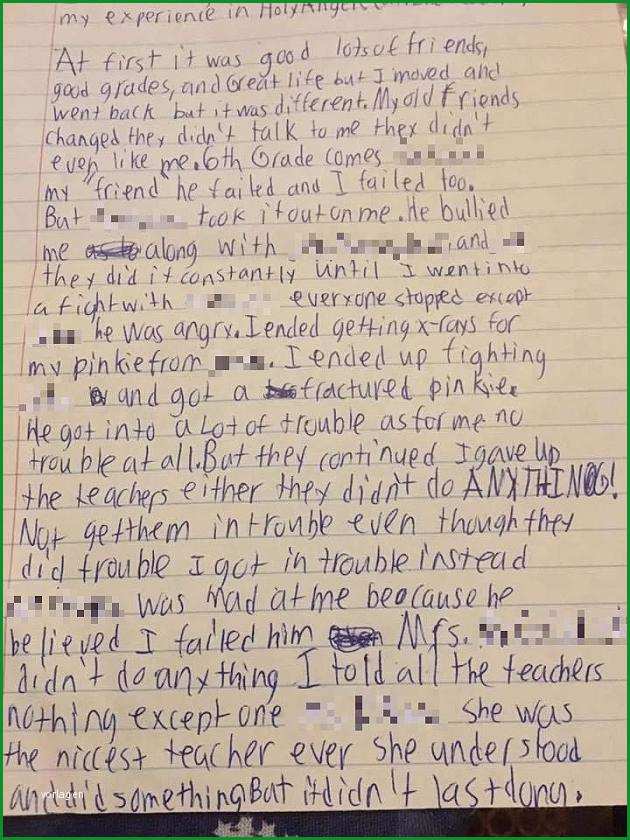 my experience in Holy Angels
At first it was good lots of friends,
good grades, and Great life but I moved and
went back but it was different. My old friends
changed they didn't talk to me they didn't
even like me. 6th Grade comes
my "friend" he failed and I failed too.
But took it out on me. He bullied
me along with and
they did it constantly until I went into
a fight with everyone stopped except
he was angry. I ended getting x-rays for
my pinkie from . I ended up fighting
and got a fractured pinkie.
He got into a Lot of trouble as for me no
trouble at all. But they continued I gave up
the teachers either they didn't do ANYTHING!
Not get them in trouble even though they
did trouble I got in trouble instead
was mad at me beacause he
believed I failed him Mrs.
didn't do anything I told all the teachers
nothing except one she was
the niccest teacher ever she understood
and did something But it didn't last long.
vorlagen